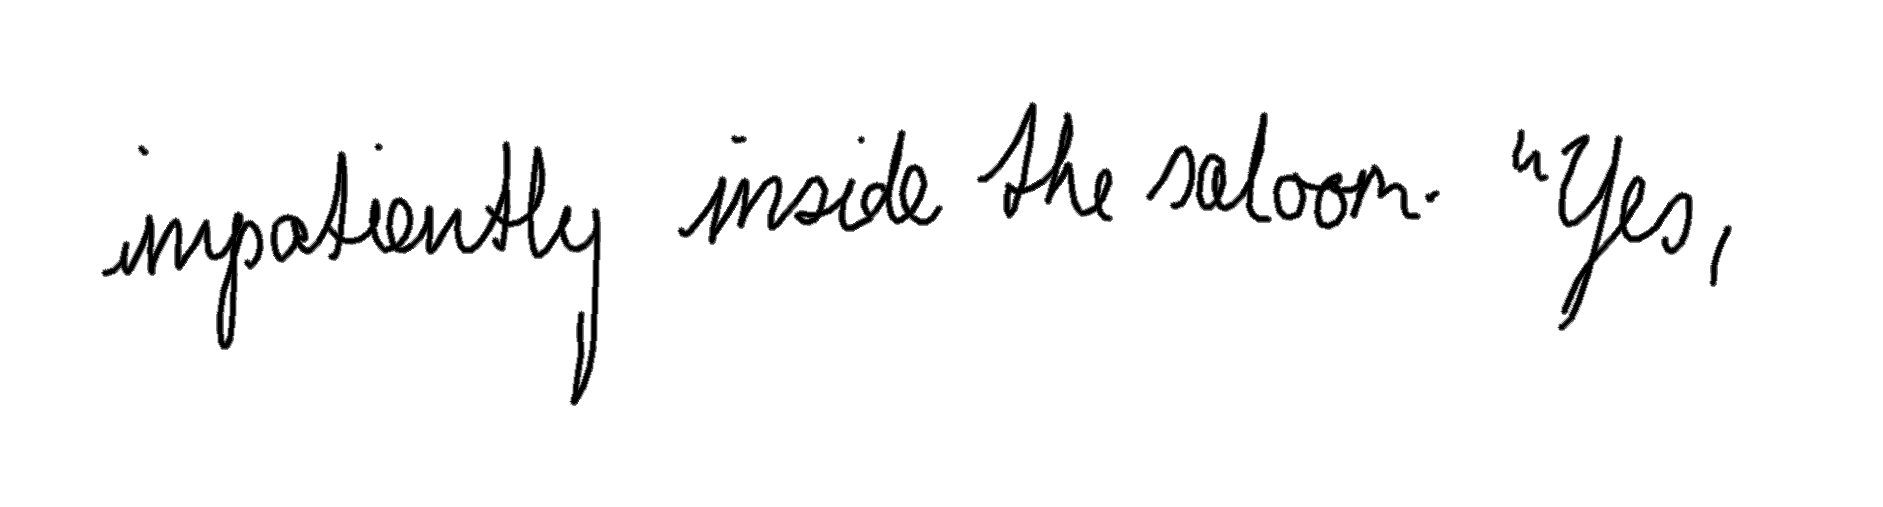 impatiently inside the saloon. "Yes,